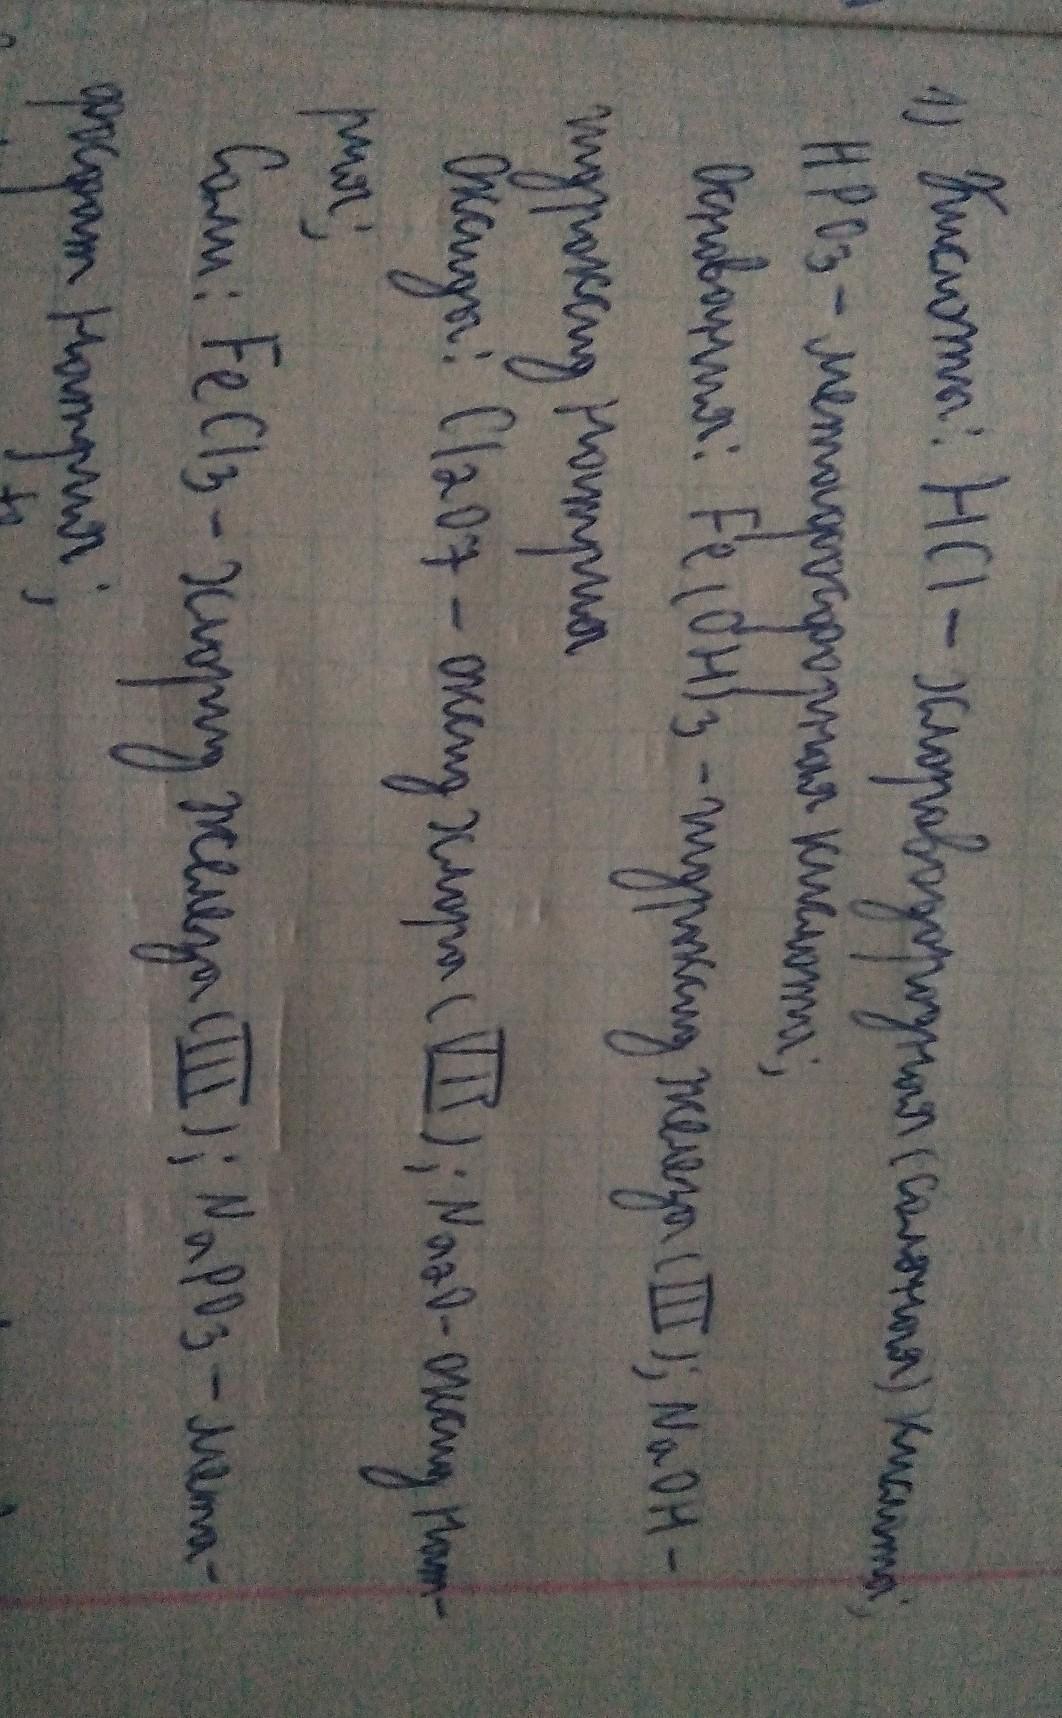 1) Кислоты: HCl - хлороводородная (соляная) кислота;
HPO3 - метафосфорная кислота;
Основания: Fe(OH)3 - гидроксид железа (III); NaOH -
гидроксид натрия
Оксиды: Cl2O7 - оксид хлора (VII); Na2O - оксид нат-
рия;
Соли: FeCl3 - хлорид железа (III); NaPO3 - мета-
фосфат натрия;